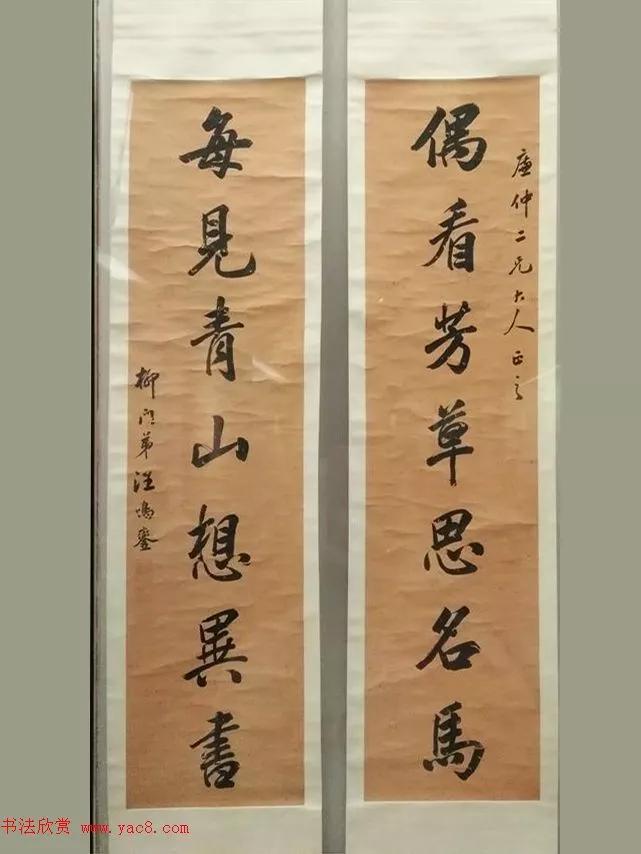 廉仲二兄大人正之
偶看芳草思名馬
每見青山想異書
柳門弟汪鳴鑾
书法欣赏 www.yac8.com